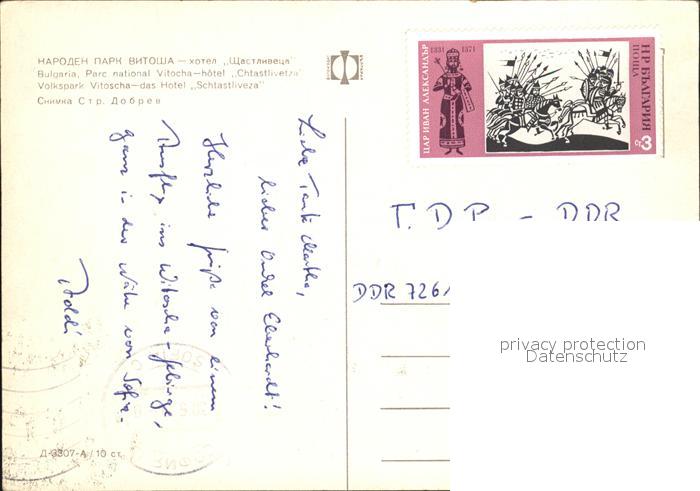 НАРОДЕН ПАРК ВИТОША — хотел „Щастливеца"
Bulgaria, Parc national Vitocha—hôtel „Chtastlivetza"
Volkspark Vitoscha—das Hotel „Schtastliveza"
Снимка Стр. Добрев
ЦАР ИВАН АЛЕКСАНДЪР
1331 1371
НР БЪЛГАРИЯ
ПОЩА
ст 3
Liebe Tante Martha,
lieber Onkel Eberhardt!
Herzliche Grüße von einem
Ausflug ins Witoscha-Gebirge,
ganz in der Nähe von Sofia.
Poldi
Г. Д Р - DDR
DDR 7261
privacy protection
Datenschutz
Д-3307-А / 10 ст.